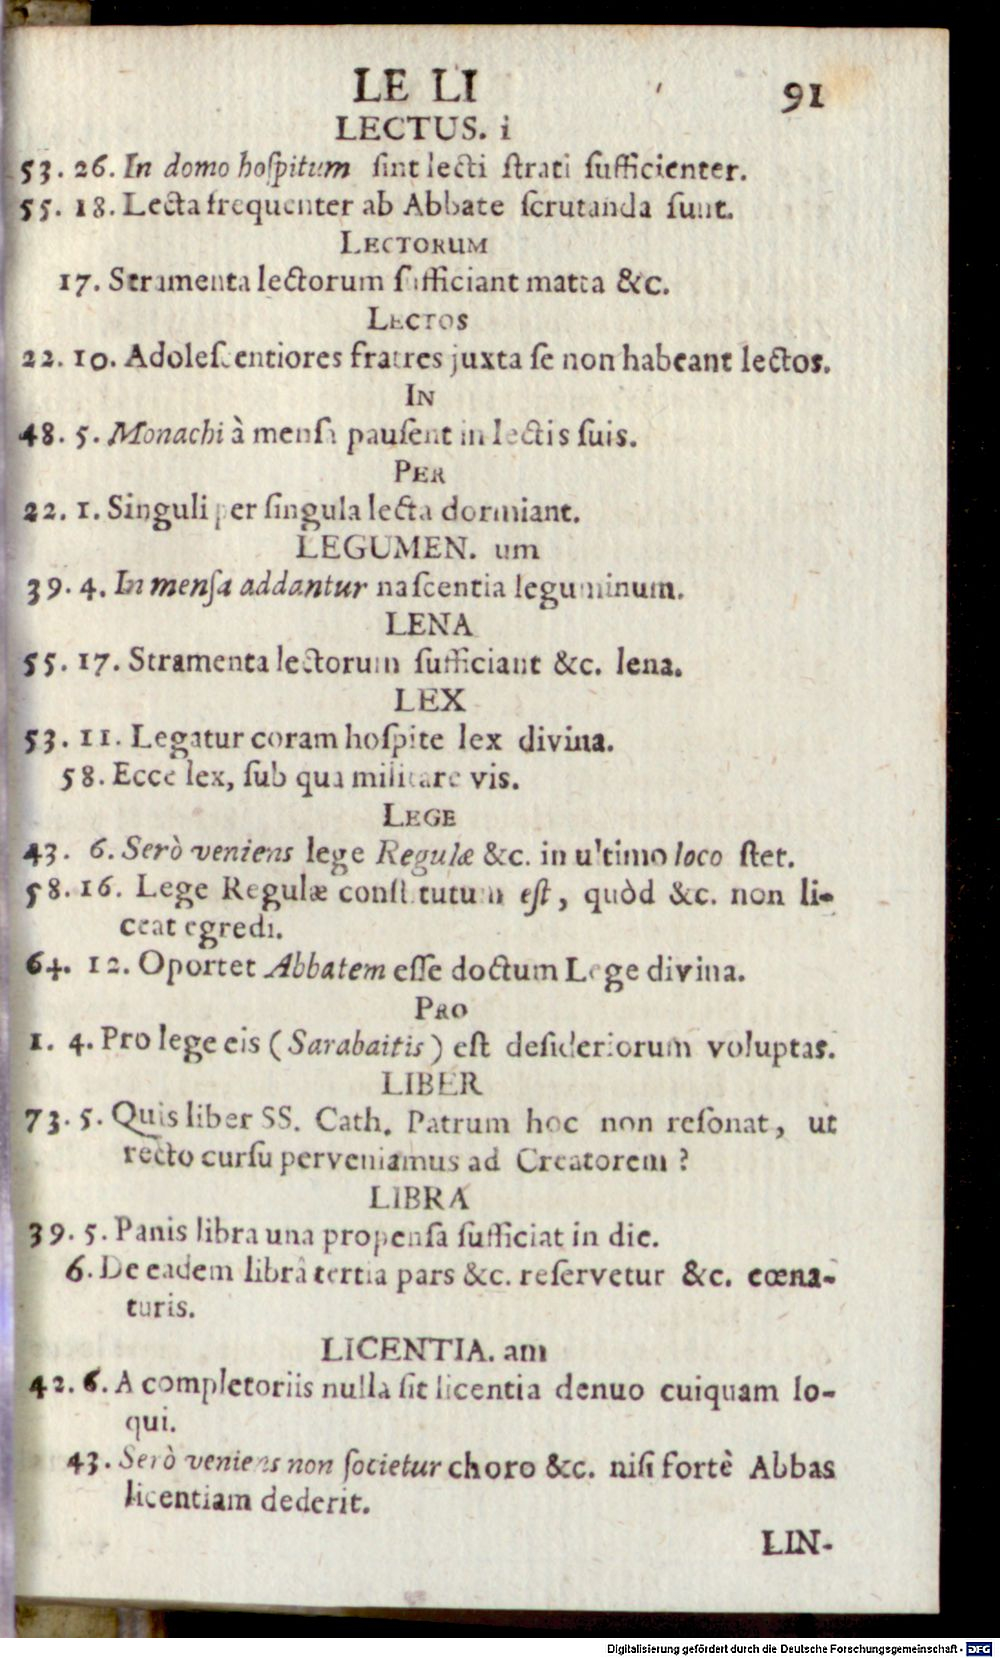 LE LI 91
LECTUS. i
53. 26. In domo hoſpitum ſint lecti ſtrati ſufficienter.
55. 18. Lecta frequenter ab Abbate ſcrutanda ſunt.
LECTORUM
17. Stramenta lectorum ſufficiant matta &c.
LECTOS
22. 10. Adoleſcentiores fratres juxta ſe non habeant lectos.
IN
48. 5. Monachi à menſa pauſent in lectis ſuis.
PER
22. 1. Singuli per ſingula lecta dormiant.
LEGUMEN. um
39. 4. In menſa addantur naſcentia leguminum.
LENA
55. 17. Stramenta lectorum ſufficiant &c. lena.
LEX
53. 11. Legatur coram hoſpite lex divina.
58. Ecce lex, ſub qua militare vis.
LEGE
43. 6. Serò veniens lege Regulæ &c. in ultimo loco ſtet.
58. 16. Lege Regulæ conſtitutum eſt, quòd &c. non li-
ceat egredi.
64. 12. Oportet Abbatem eſſe doctum Lege divina.
PRO
1. 4. Pro lege eis (Sarabaitis) eſt deſideriorum voluptas.
LIBER
73. 5. Quis liber SS. Cath. Patrum hoc non reſonat, ut
recto curſu perveniamus ad Creatorem?
LIBRA
39. 5. Panis libra una propenſa ſufficiat in die.
6. De eadem librâ tertia pars &c. reſervetur &c. cœna-
turis.
LICENTIA. am
42. 6. A completoriis nulla ſit licentia denuo cuiquam lo-
qui.
43. Serò veniens non ſocietur choro &c. niſi fortè Abbas
licentiam dederit.
LIN-
Digitalisierung gefördert durch die Deutsche Forschungsgemeinschaft - DFG